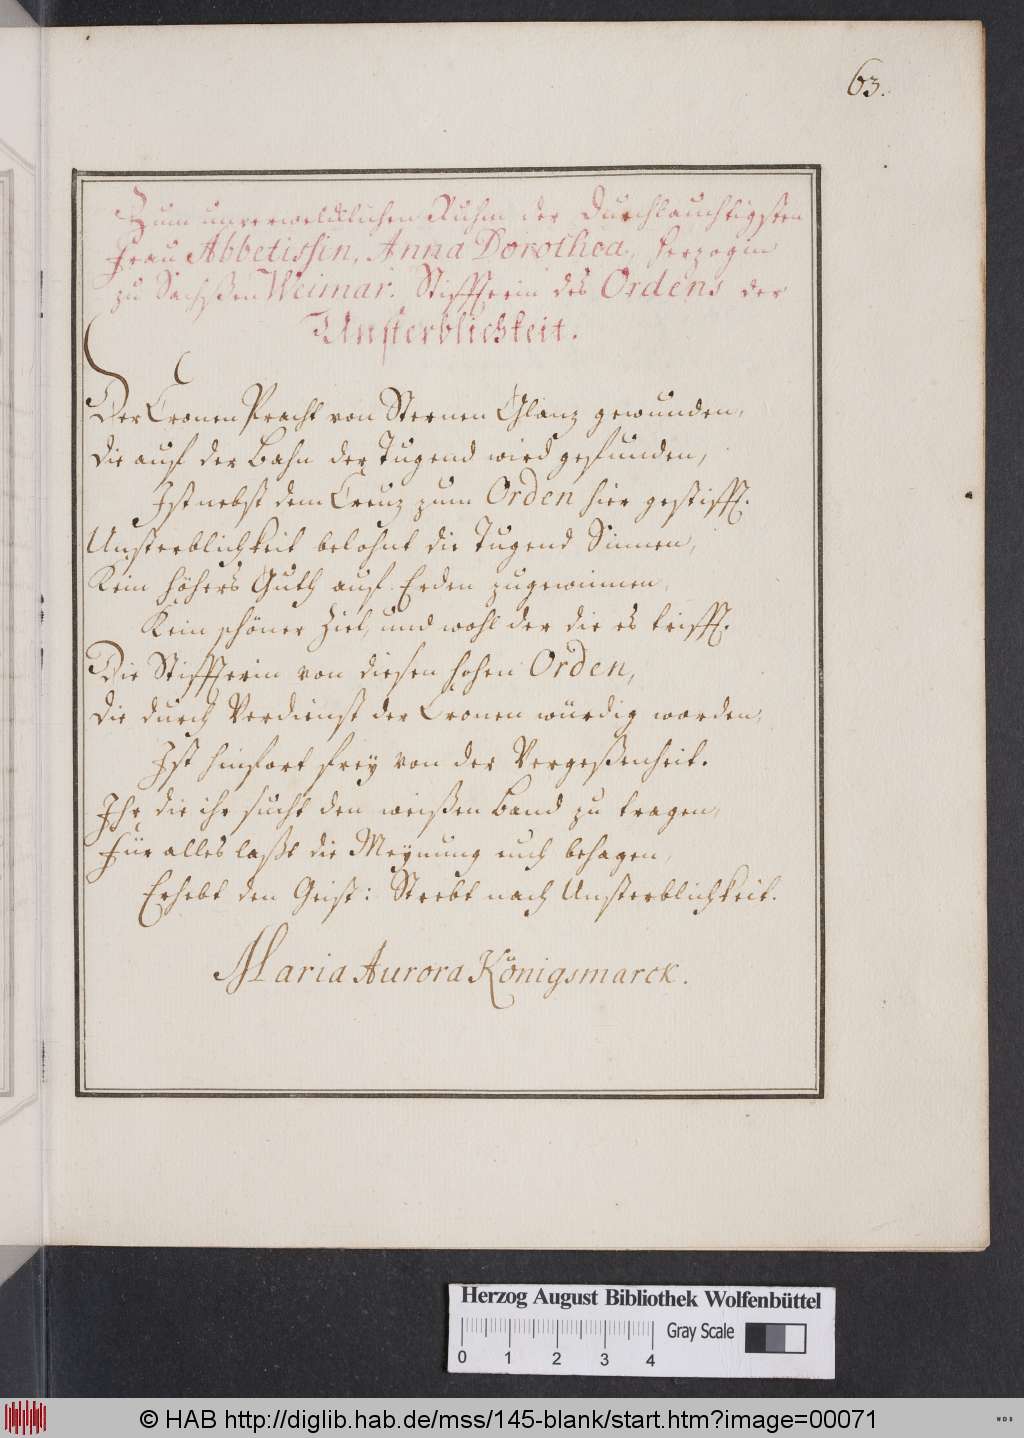 63.
Zum unverwelcklichen Ruhm der Durchlauchtigsten
Frau Abbetissin, Anna Dorothea, Herzogin
zu Sachßen Weimar. Stiffterin des Ordens der
Unsterblichkeit.
Der Cronen Pracht von Sternen Glanz gewunden,
Die auf der Bahn der Tugend wird gefunden,
Ist nebst dem Creuz zum Orden hier gestifft.
Unsterblichkeit belohnt die Tugend Sinnen,
Kein höhers Guth auf Erden zugewinnen,
Kein schöner Ziel, und wohl der die es trifft.
Die Stiffterin von diesen hohen Orden,
Die durch Verdienst der Cronen würdig worden,
Ist hinfort frey von der Vergeßenheit.
Ihr die ihr sucht den weißen Band zu tragen,
Für alles laßt die Meynung euch behagen,
Erhebt den Geist: Strebt nach Unsterblichkeit.
Maria Aurora Königsmarck.
Herzog August Bibliothek Wolfenbüttel
Gray Scale
0 1 2 3 4
© HAB http://diglib.hab.de/mss/145-blank/start.htm?image=00071